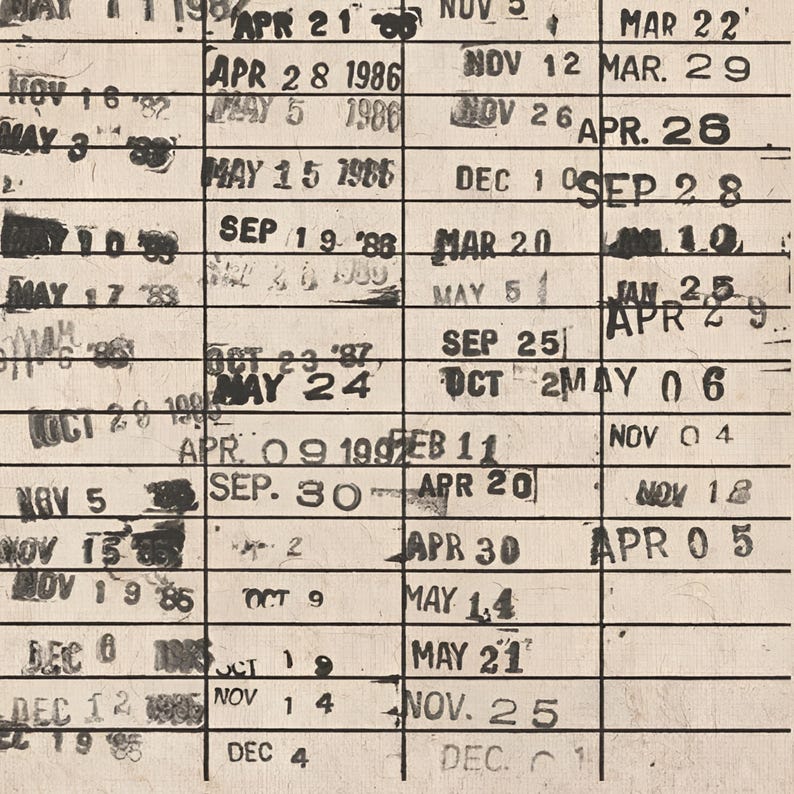 MAY 11 1982
NOV 16 '82
MAY 3
MAY 10
MAY 17 '83
6
OCT 28 198
NOV 5
NOV 15 '85
NOV 19 '85
DEC 6
DEC 12 1985
19 '85
APR 21 '86
APR 28 1986
MAY 5 1986
MAY 15 1986
SEP 19 '86
20 1989
OCT 23 '87
MAY 24
APR. 09 1992
SEP. 30
2
OCT 9
OCT 19
NOV 14
DEC 4
NOV 5
NOV 12
NOV 26
DEC 10
MAR 20
MAY 51
SEP 25
OCT 2
FEB 11
APR 20
APR 30
MAY 14
MAY 21
NOV. 25
DEC. 01
MAR 22
MAR. 29
APR. 26
SEP 28
JAN 10
JAN 25
APR 29
MAY 06
NOV 04
NOV 18
APR 05